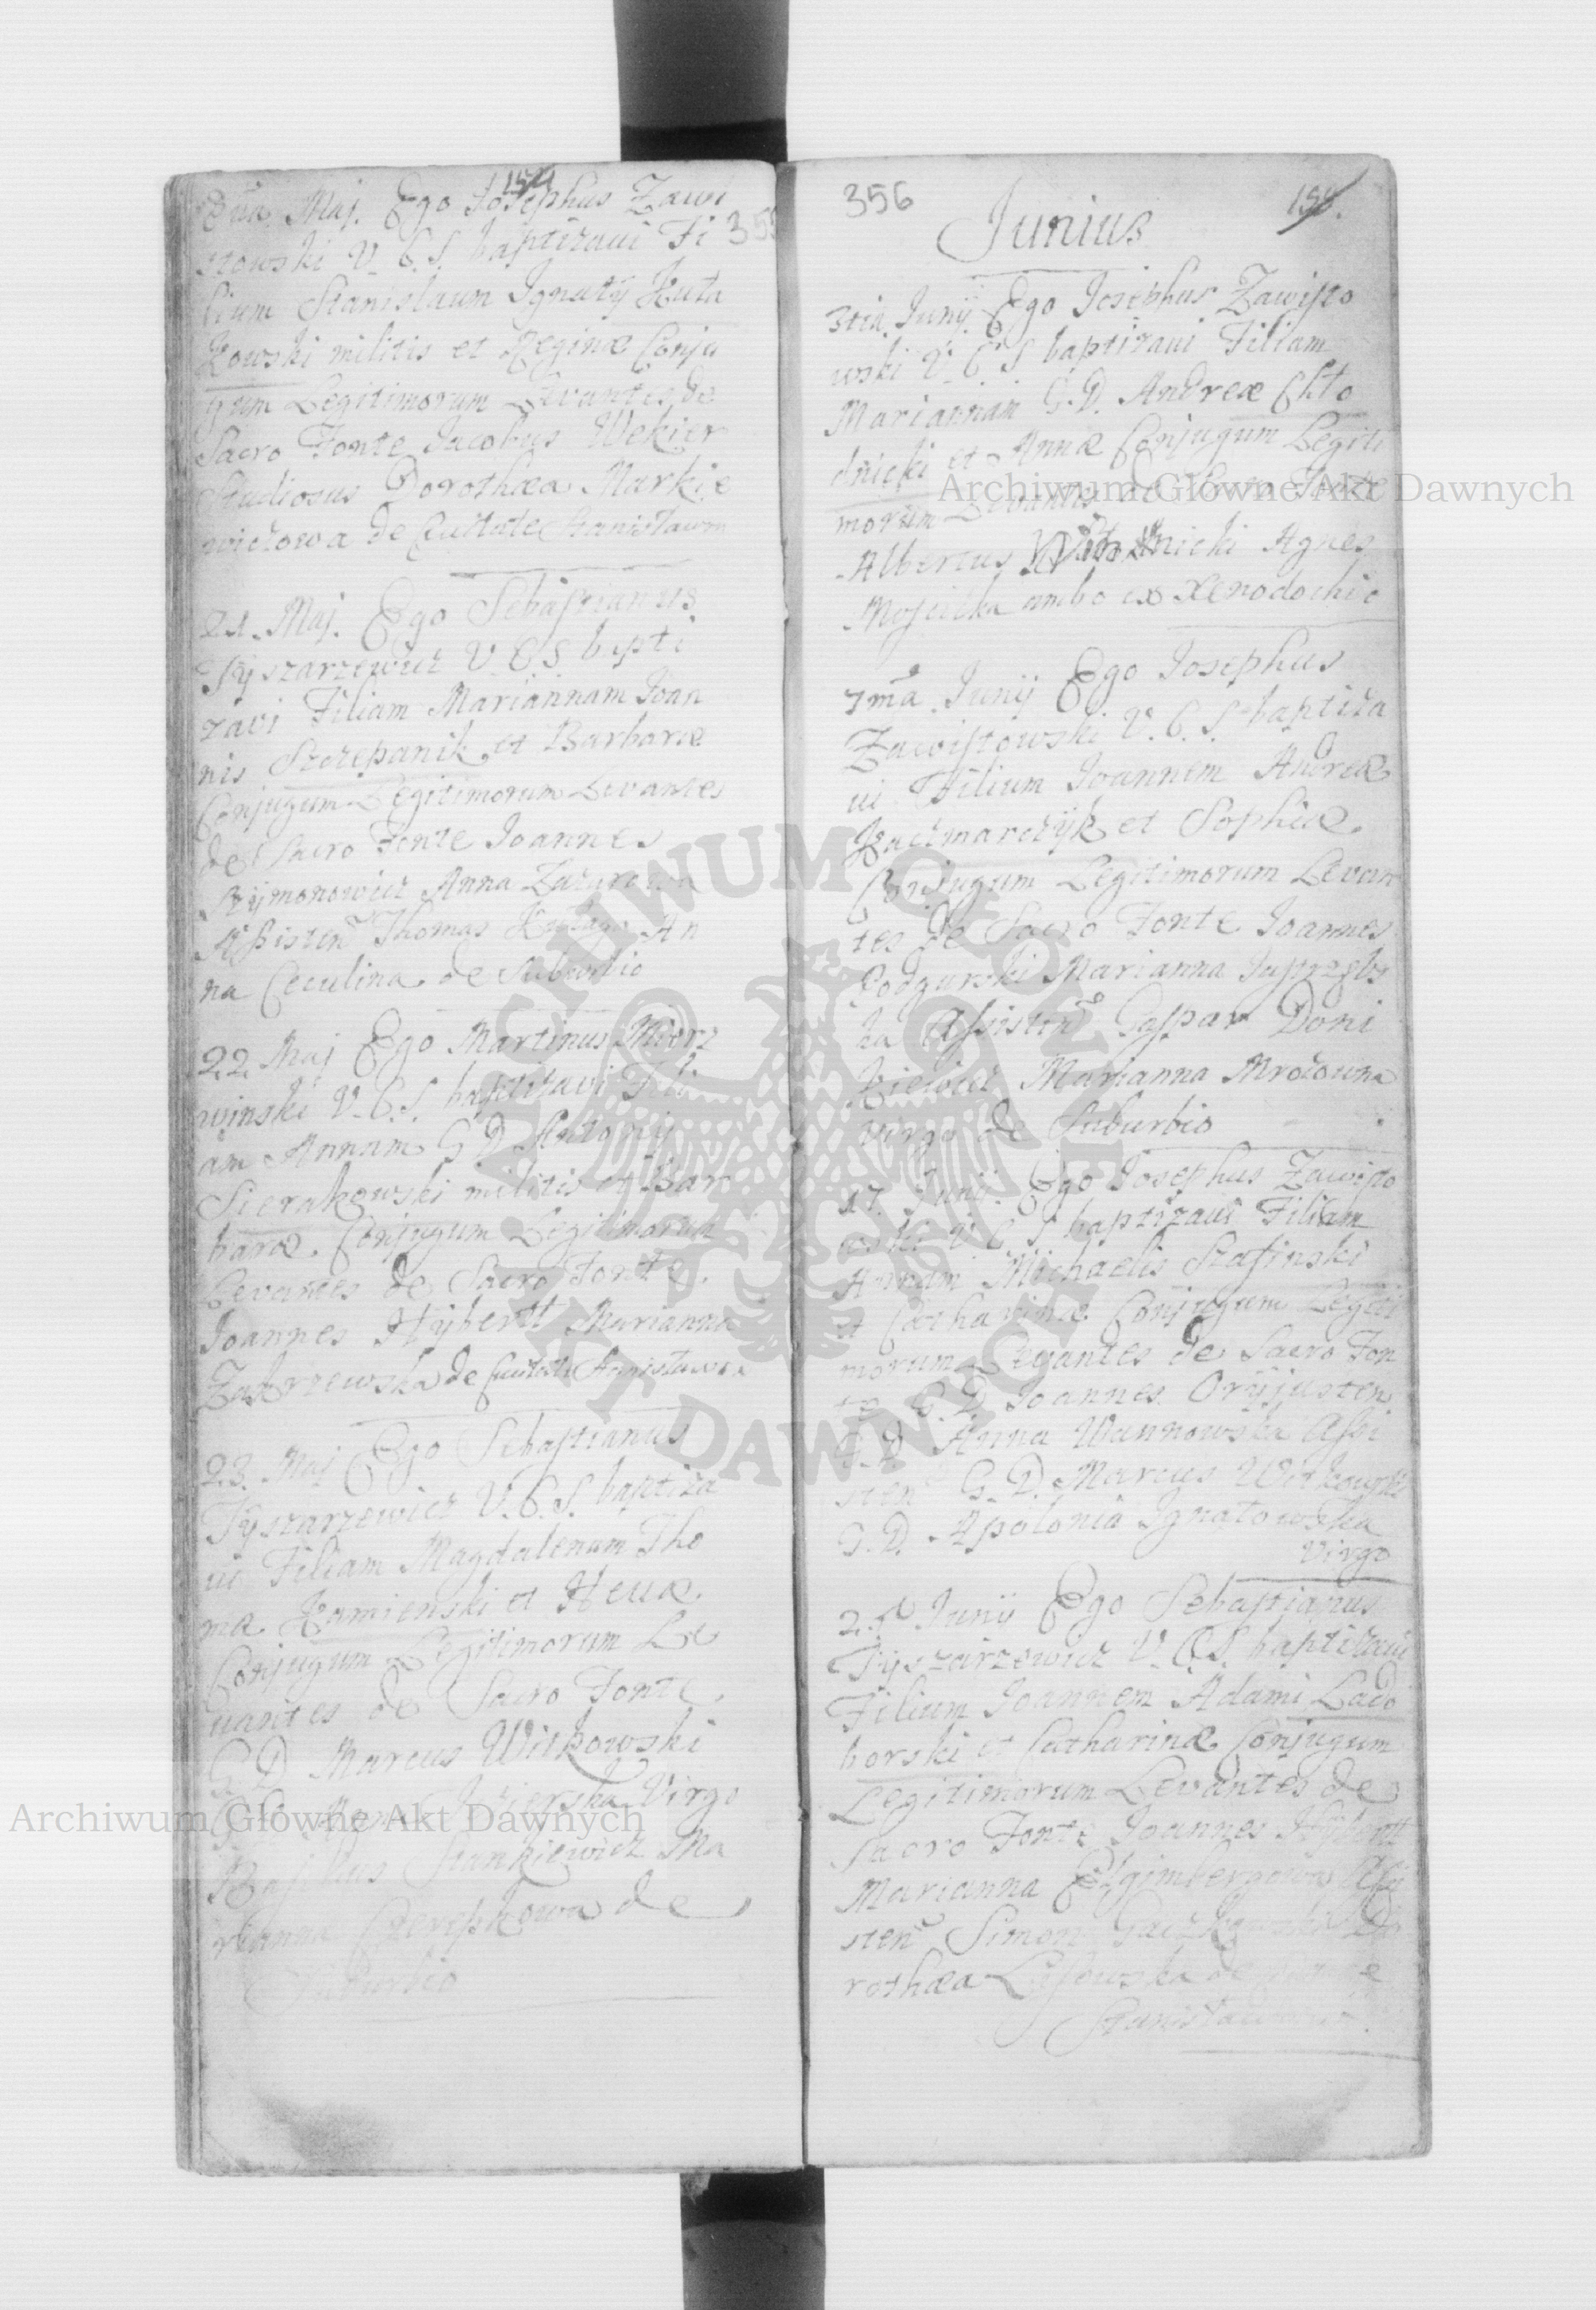 154
355
Maj. Ego Josephus Zawi
stowski V. C. S. baptizaui Fi
lium Stanislaum Ignatij Kuta
kowski militis et Reginæ Conju
gum Legitimorum Levantes de
Sacro Fonte Jacobus Wekier
Studiosus Dorothæa Markie
wiczowa de Ciuitate
21. Maj. Ego Sebastianus
Tyszarzewicz V. C. S. bapti
zavi Filiam Mariannam Joan
nis Szczepanik et Barbaræ
Conjugum Legitimorum Levantes
de Sacro Fonte Joannes
Szymonowicz Anna
Assisten Thomas An
na Ceculina de Suburbio
22. Maj Ego Martinus Mierz
winski V. C. S. baptizavi Fili
am Annam G D Antonij
Sierakowski militis et Bar
baræ Conjugum Legitimorum
Levantes de Sacro Fonte
Joannes Hybertt Marianna
Zakrzewska de Ciuitate
23. Maj Ego Sebastianus
Tyszarzewicz V. C. S. baptiza
ui Filiam Magdalenam Tho
mæ Kamienski et Heuæ
Conjugum Legitimorum Le
uantes de Sacro Fonte
G D Marcus Witkowski
Virgo
Stankiewicz Ma
rianna de
Suburbio
356
155.
Junius
3tia Junij Ego Josephus Zawisto
wski V. C. S baptizaui Filiam
Mariannam G. D. Andreæ Chło
dnicki et Annæ Conjugum Legiti
morum Levantes de Sacro Fonte
Albertus Agnes
ambo ex Xenodochio
7ma Junij Ego Josephus
Zawistowski V. C. S. baptiza
ui Filium Joannem Andreæ
Kaczmarczyk et Sophiæ
Conjugum Legitimorum Levan
tes de Sacro Fonte Joannes
Podgurski Marianna Jastrzębs
ka Assisten Gaspar Doni
kiewicz Marianna Mrozowna
Virgo de Suburbio
17. Junij Ego Josephus Zawisto
wski V C S baptizaui Filiam
Annam Michaelis Stasinski
et Catharinæ Conjugum Legiti
morum Levantes de Sacro Fon
te G. D Joannes
G. D. Anna Wannowska Assi
sten G. D. Marcus Witkowski
G. D. Apolonia Ignatowska
Virgo
Junij Ego Sebastianus
Tyszarzewicz V. C. S. baptizaui
Filium Joannem Adami Lado
borski et Catharinæ Conjugum
Legitimorum Levantes de
Sacro Fonte Joannes Hybertt
Marianna Assi
sten Simon Do
rothæa de
Archiwum Główne Akt Dawnych
Archiwum Główne Akt Dawnych
ARCHIWUM GŁÓWNE AKT DAWNYCH